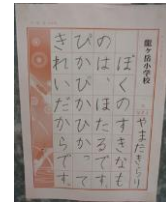 龍ヶ岳小学校
やまだきらり
ぼくのすきなも
のは、ほたるです。
ぴかぴかひかって
きれいだからです。